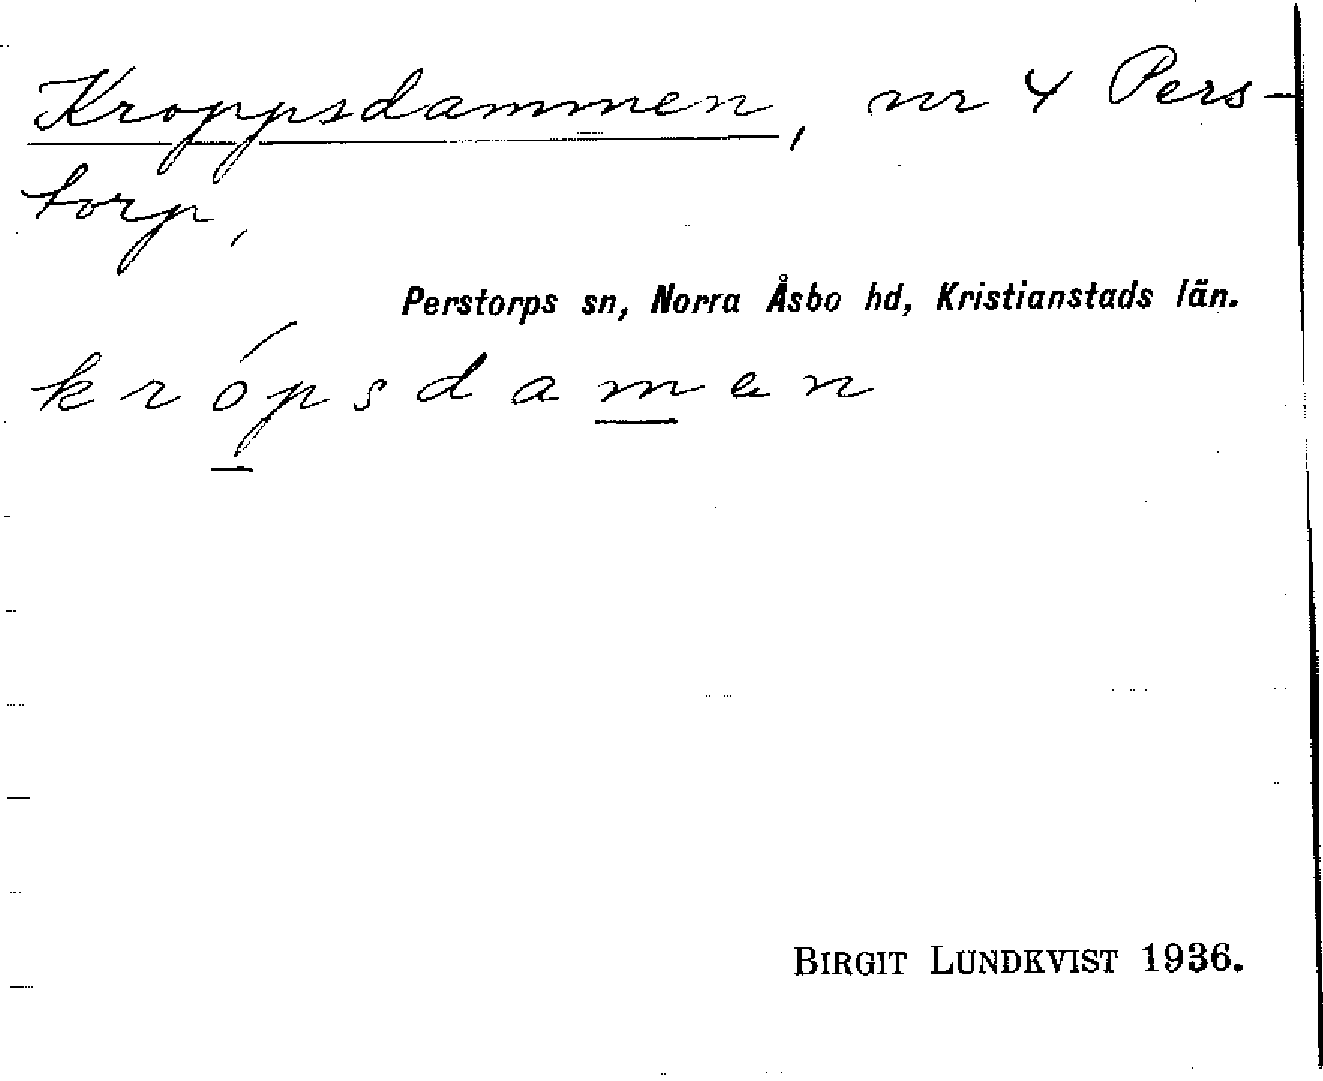 Kroppsdammen, nr 4 Pers-
torp,
Perstorps sn, Norra Åsbo hd, Kristianstads län.
krópsdamen
BIRGIT LUNDKVIST 1936.